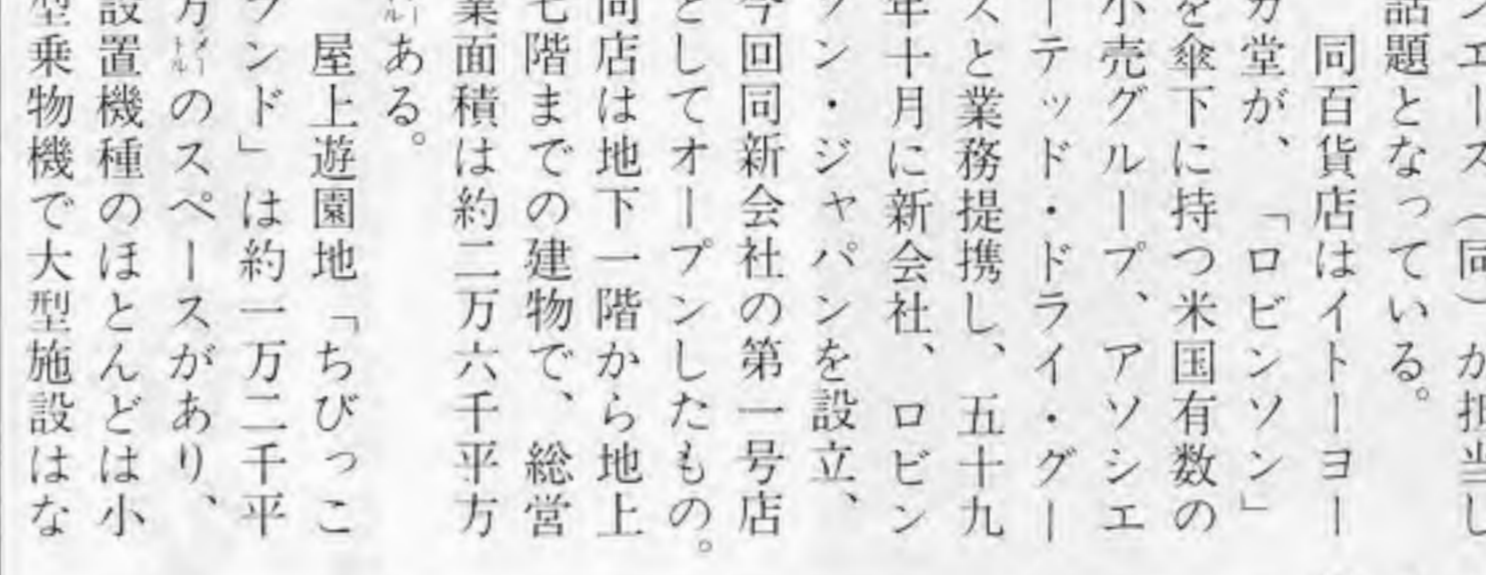 ンエース（同）が担当し
話題となっている。
同百貨店はイトーヨー
カ堂が、「ロビンソン」
を傘下に持つ米国有数の
小売グループ、アソシエ
ーテッド・ドライ・グー
スと業務提携し、五十九
年十月に新会社、ロビン
ソン・ジャパンを設立、
今回同新会社の第一号店
としてオープンしたもの。
同店は地下一階から地上
七階までの建物で、総営
業面積は約二万六千平方
ある。
屋上遊園地「ちびっこ
ランド」は約一万二千平
方メートルのスペースがあり、
設置機種のほとんどは小
型乗物機で大型施設はな